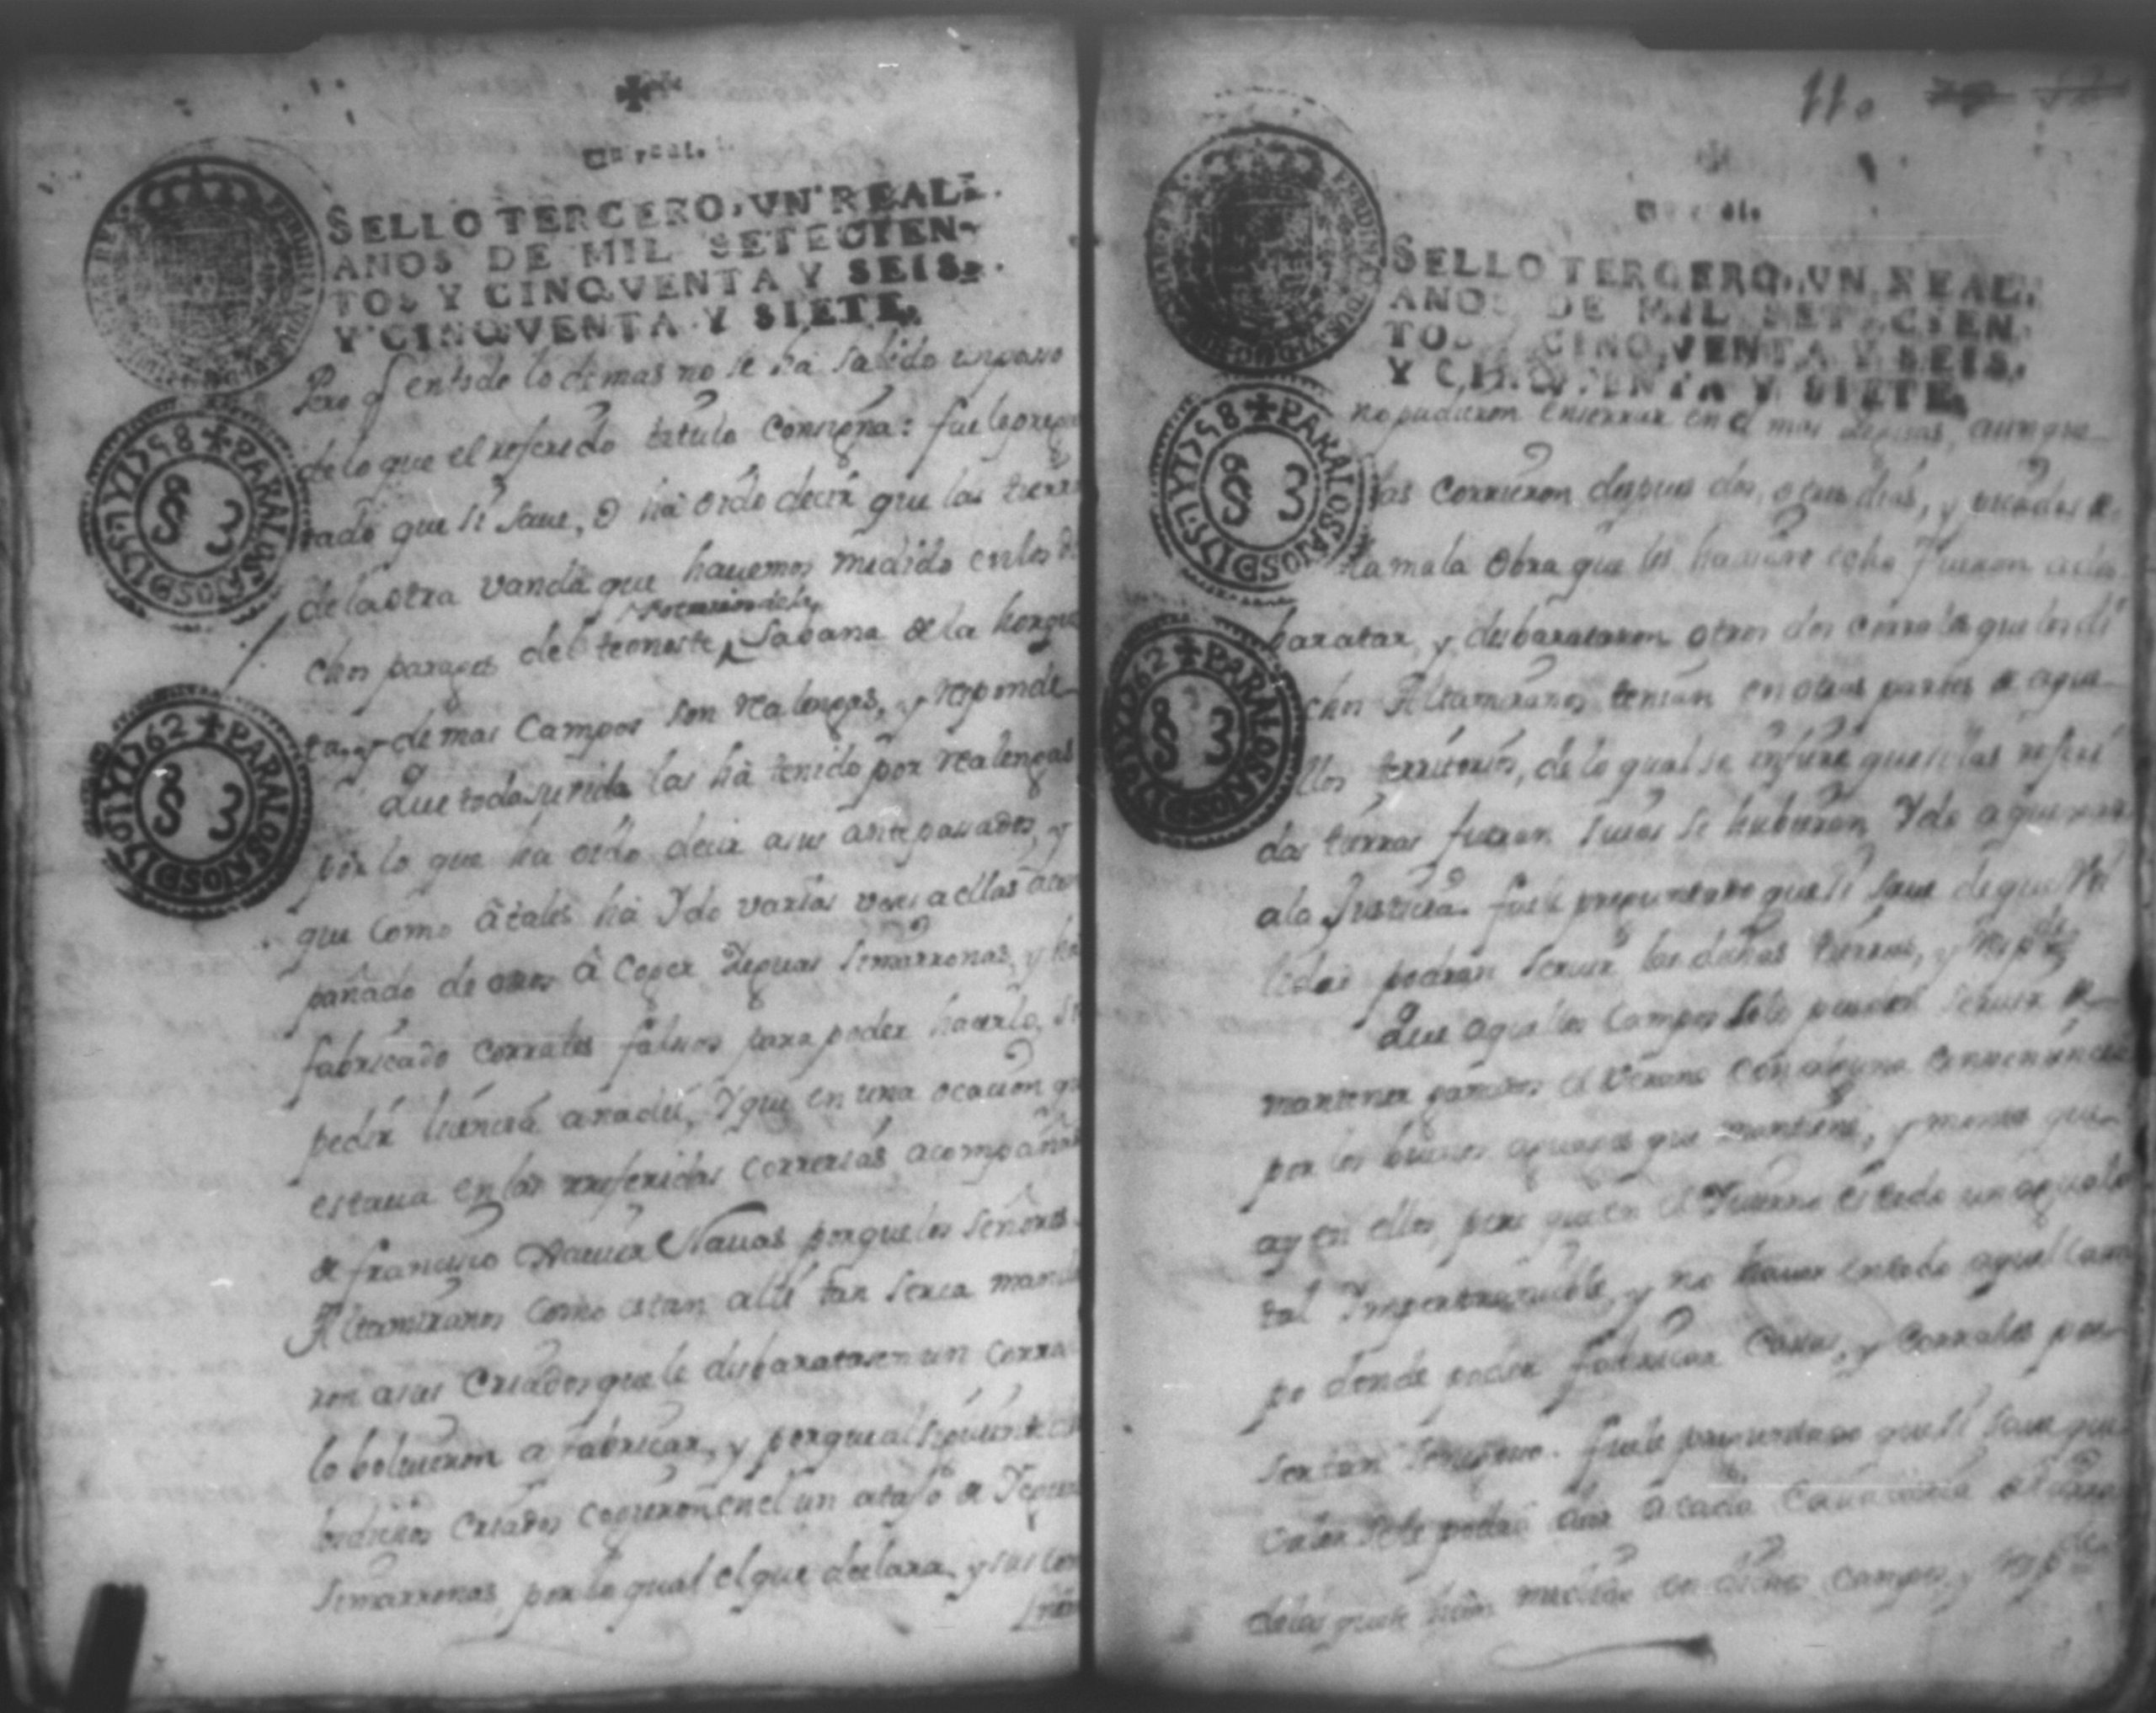 Un real.
SELLO TERCERO, VN REAL,
AÑOS DE MIL SETECIEN-
TOS Y CINQVENTA Y SEIS,
Y CINQVENTA Y SIETE.
PARA LOS AÑOS DE 1757 Y 1758
PARA LOS AÑOS DE 1761 Y 1762
Pero q entodo lo demas no se ha salido un paso
de lo que el referido titulo consigna: fuele pregun
tado que si save, o ha oido decir que las tierras
de la otra vanda que havemos medido en los di
chos parages del teoneste, Sabana de la horque
ta, y demas Campos son realengas, y responde
Que toda su vida las há tenido por realengas
por lo que ha oido decir a sus antepasados, y
que como á tales há Ydo varias veses a ellas acom
pañado de otros á Coger Yeguas simarronas, y ha
fabricado corrales falsos para poder hacerlo, sin
pedir licencia a nadie, Y que en una ocacion que
estava en las referidas correrias acompañado
de francisco Xavier Navas porque los señores
Altamiranos como estan alli tan serca manda
ron a sus Criados que le disbaratasen un corral
lo bolvieron a fabricar, y porque al siguiente dia
los dichos Criados cogieron en el un atajo de Yeguas
simarronas, por lo qual el que declara, y sus com
11.
Un real.
SELLO TERCERO, VN REAL,
AÑOS DE MIL SETECIEN-
TOS Y CINQVENTA Y SEIS,
Y CINQVENTA Y SIETE.
PARA LOS AÑOS DE 1757 Y 1758
PARA LOS AÑOS DE 1761 Y 1762
no pudieron enserrar en el mas Yeguas, aunque
las corrieron despues dos, o tres dias, y
la mala obra que les havian echo fueron a des
baratar, y desbarataron otros dos corrales que los di
chos Altamiranos tenian en otras partes de aque
llos territorios, de lo qual se infiere que si las referi
das tierras fueran suias se hubieran Ydo a quexar
a la Justicia. fuele preguntado que si save de que uti
lidad podran servir las dichas tierras, y respde
Que aquellos Campos solo pueden servir de
mantener ganados el Verano con alguna convenencia
por los buenos aguajes que mantiene, y montes que
ay en ellos, pero que en el Yvierno es todo un agual
tal Ympenetrable, y no haver en todo aquel cam
po donde poder fabricar Casas, y Corrales por
ser tan fuele preguntado que si save que
valor se le podrá dar á cada Cavalleria de tierra
de las que se han medido en dichos Campos, y respde